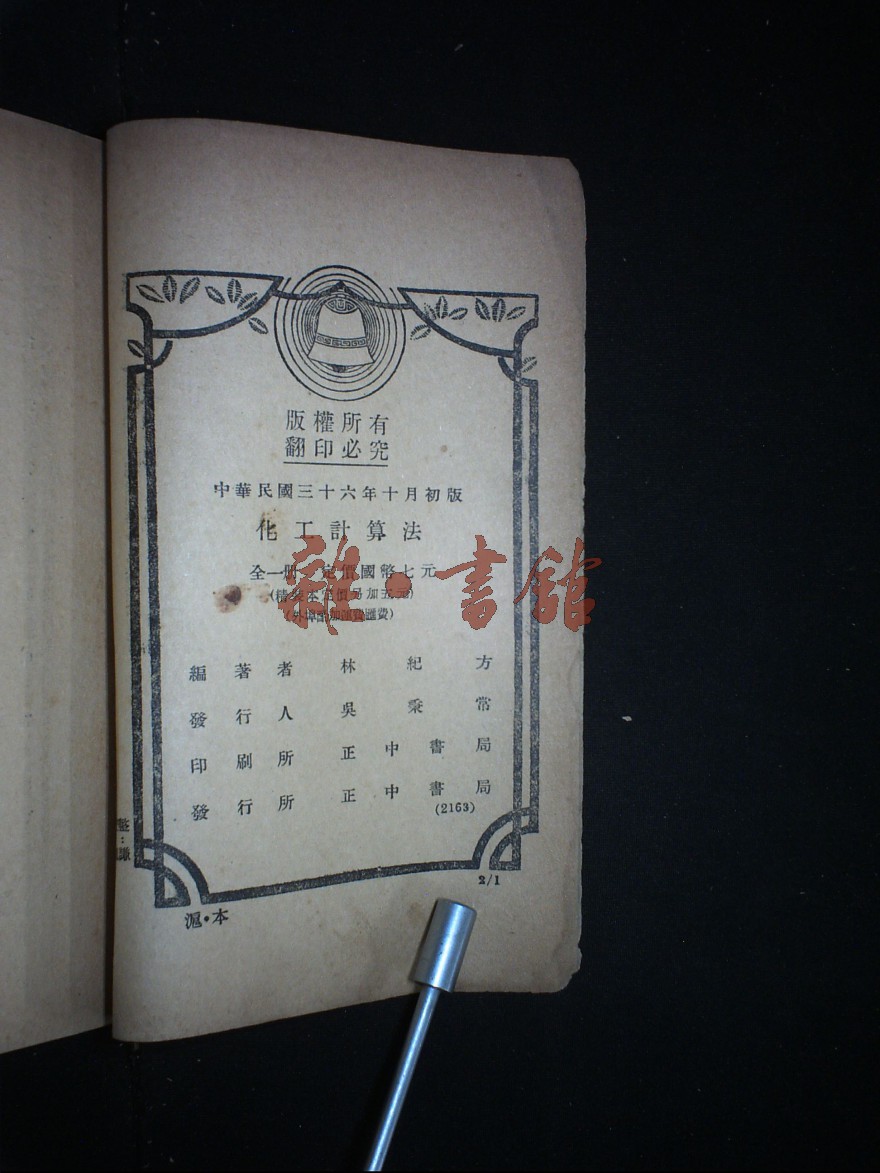 版權所有
翻印必究
中華民國三十六年十月初版
化工計算法
全一冊 定價國幣七元
(精裝本定價另加五元)
(外埠酌加運費匯費)
編著者 林紀方
發行人 吳秉常
印刷所 正中書局
發行所 正中書局
(2163)
2/1
滬·本
雜·書館